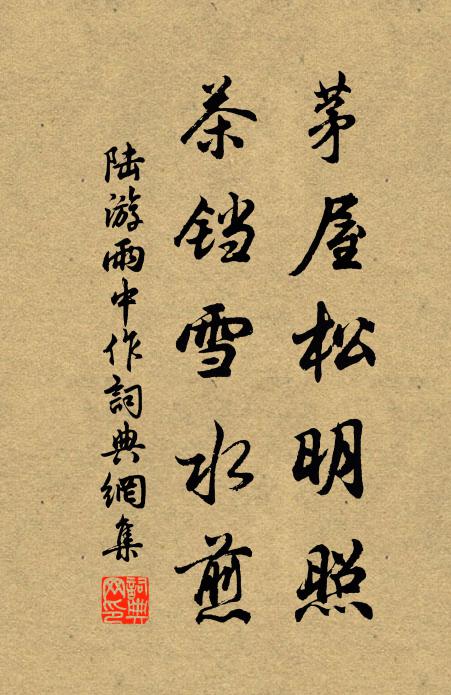 茅屋松明照
茶铛雪水煎
陆游雨中作詞典網集
詞典网印